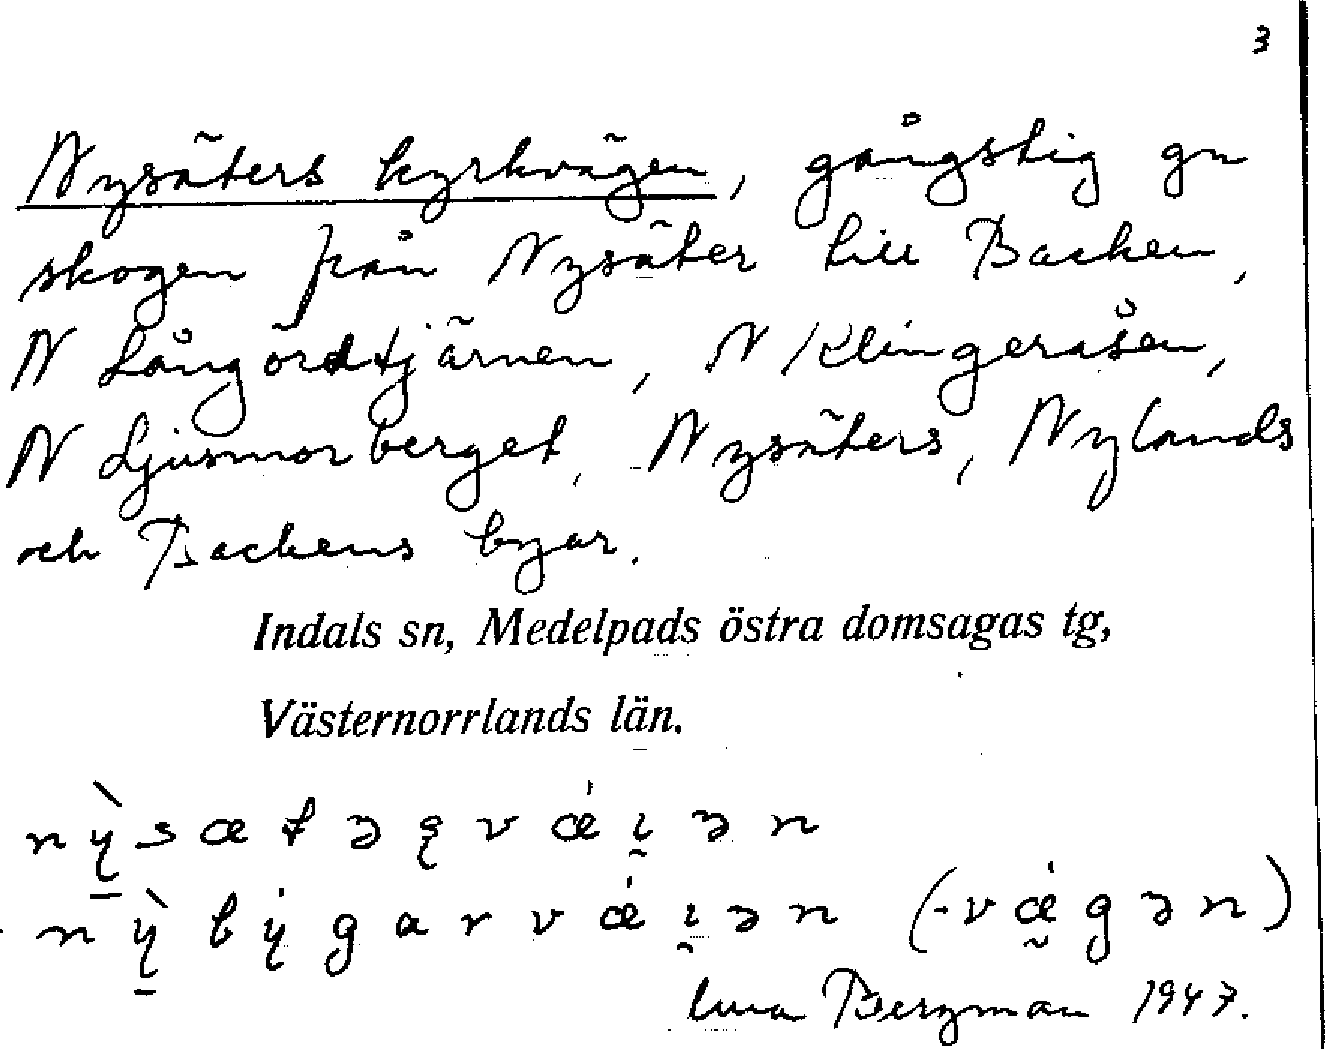 3
Nysäters kyrkvägen, gångstig gn
skogen från Nysäter till Backen,
N Långördtjärnen, N Klingeråsen,
N Ljusmorberget, Nysäters, Nylands
och Backens byar.
Indals sn, Medelpads östra domsagas tg,
Västernorrlands län.
Bergman 1947.